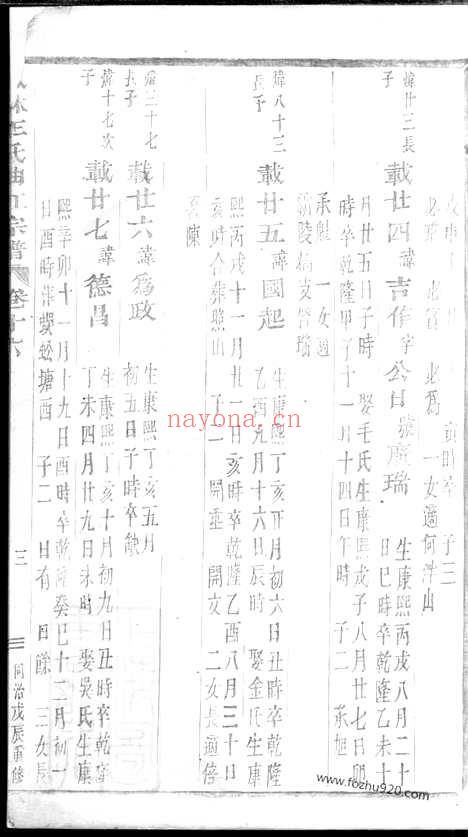 必富 必為 一女適何沖山
煒廿三長子
載廿四諱吉作字公日號療瑞
生康熙丙戌八月二十日巳時卒乾隆乙未十
月廿五日子時 娶毛氏生康熙戊子八月廿七日卯
時卒乾隆甲子十一月十四日午時 子二 承旭
承魁 一女適
煒八十三長子
載廿五諱國起
生康熙丁亥正月初六日丑時卒乾隆
乙酉九月十六日辰時 娶金氏生康
熙丙戌十一月廿一日亥時卒乾隆乙酉八月三十日
亥時合葬 子二 開垂 開交 二女長適倍
陳
煒三十七長子
載廿六諱為政
生康熙丁亥五月
初五日子時卒缺
煒十七次子
載廿七諱德昌
生康熙丁亥十月初九日丑時卒乾隆
丁未四月廿九日未時 娶吳氏生康
熙辛卯十一月十九日酉時卒乾隆癸巳十二月初一
日酉時葬蜈蚣塘西 子二 日有 日餘 三女長
林王氏曲江宗譜 卷十六
三
同治戊辰重修
nayona.cn
www.fozhu920.com